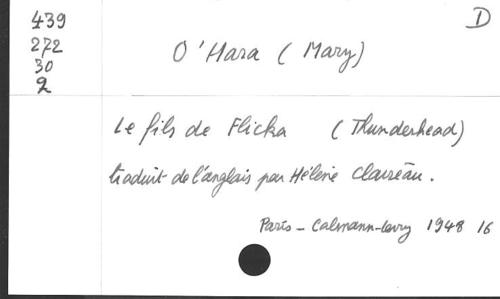 439
272
30
2
D
O'Hara (Mary)
Le fils de Flicka (Thunderhead)
traduit de l'anglais par Hélène Claireau.
Paris - Calmann-Levy 1948 16